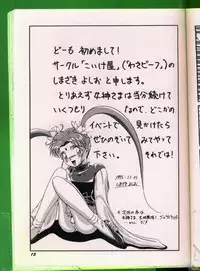 どーも 初めまして!
サークル「こいけ屋」(わさビーフ。)の
しまざき よしお と申します。
とりあえず 女神さまは 当分 続けて
いくつもり なので、どこかの
イベントで 見かけたら
ぜひのぞいて みてやって
下さい。 それでは!
1993.11.01
12